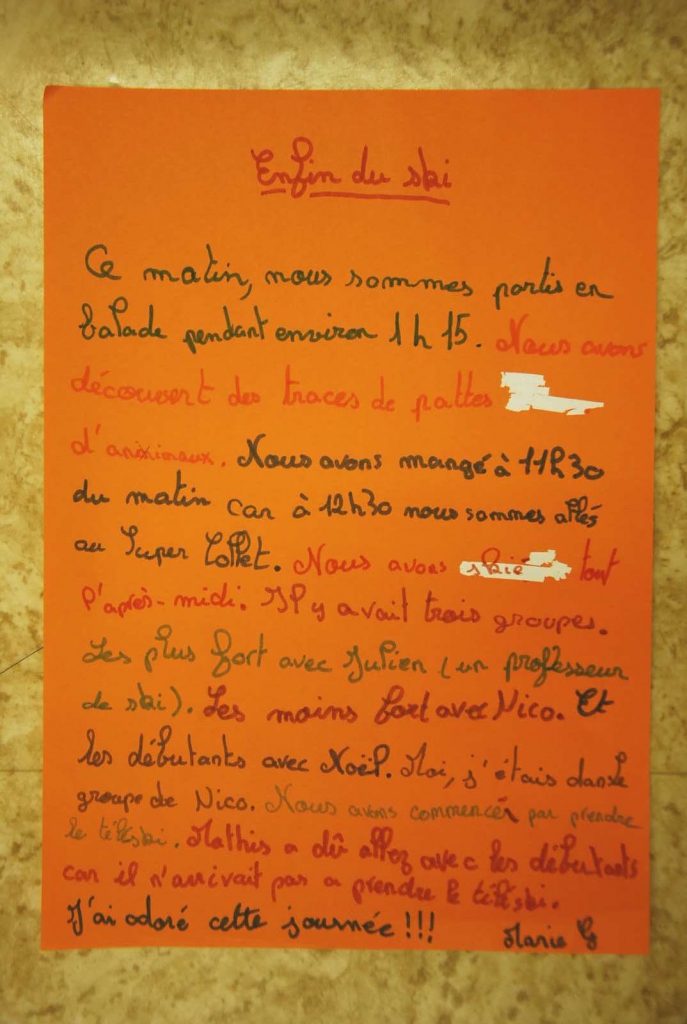 Enfin du ski
Ce matin, nous sommes partis en
balade pendant environ 1 h 15. Nous avons
découvert des traces de pattes
d'animaux. Nous avons mangé à 11h30
du matin car à 12h30 nous sommes allés
au Super Collet. Nous avons skié tout
l'après-midi. Il y avait trois groupes.
Les plus fort avec Julien (un professeur
de ski). Les moins fort avec Nico. Et
les débutants avec Noël. Moi, j'étais dans le
groupe de Nico. Nous avons commencer par prendre
le téléski. Mathis a dû allez avec les débutants
car il n'arrivait pas a prendre le téléski.
J'ai adoré cette journée !!!
Marie G